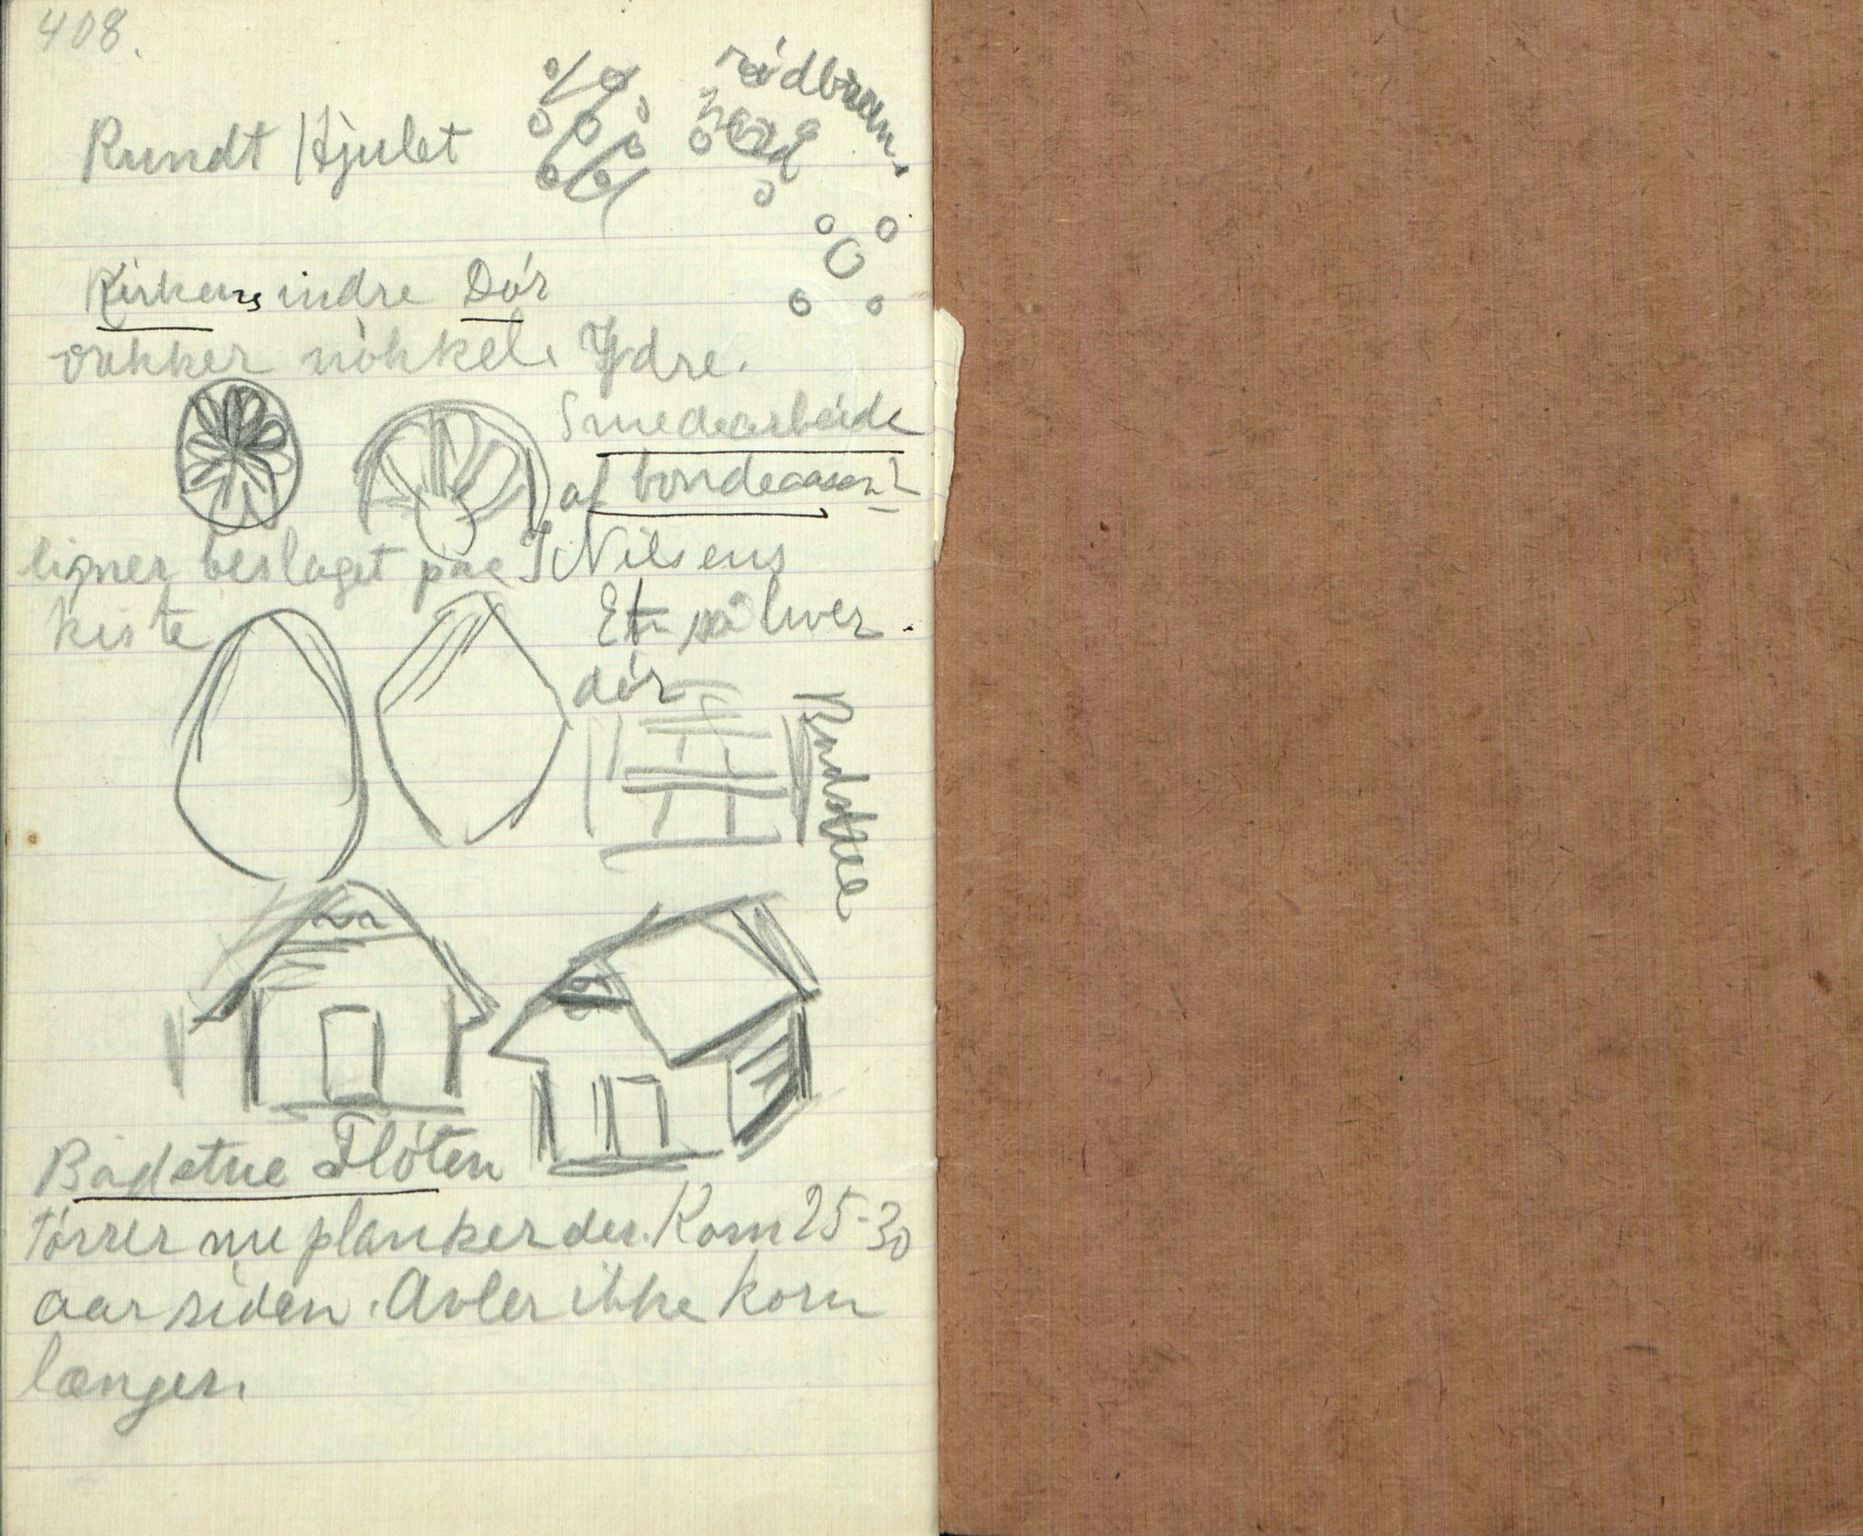 408.
rödbrun
Rundt Hjulet
Kirkens indre Dör
vakker nökkel. Ydre.
Smedearbeide
af bonde
ligner beslaget paa Nilsens
kiste
Et på hver
dör
Badstue
Badstue Flöten
Törrer nu planker der. Korn 25-30
aar siden. Avler ikke korn
længer.